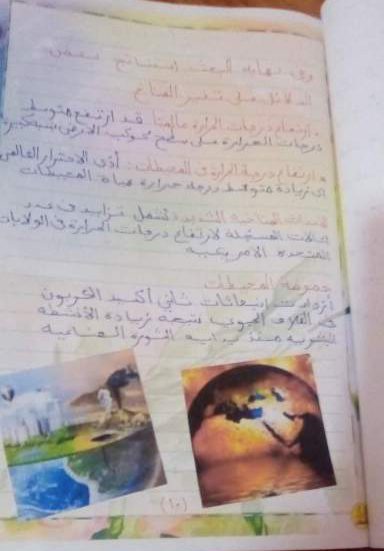 وفى نهاية البحث استنتاج بعض
الدلائل على تغير المناخ
* ارتفاع درجات الحرارة عالميًا قد ارتفع متوسط
درجات الحرارة على سطح كوكب الأرض بشكل كبير
* ارتفاع درجة الحرارة فى المحيطات: أدى الاحترار العالمى
إلى زيادة متوسط درجة حرارة مياه المحيطات
المناخية الشديد: تشمل تزايد فى عدد
حالات المسجلة لارتفاع درجات الحرارة فى الولايات
المتحدة الأمريكية
حموضة المحيطات
ازداد انبعاثات ثانى أكسيد الكربون
فى الغلاف الجوى نتيجة زيادة الأنشطة
البشرية منذ الثورة الصناعية
(١٠)